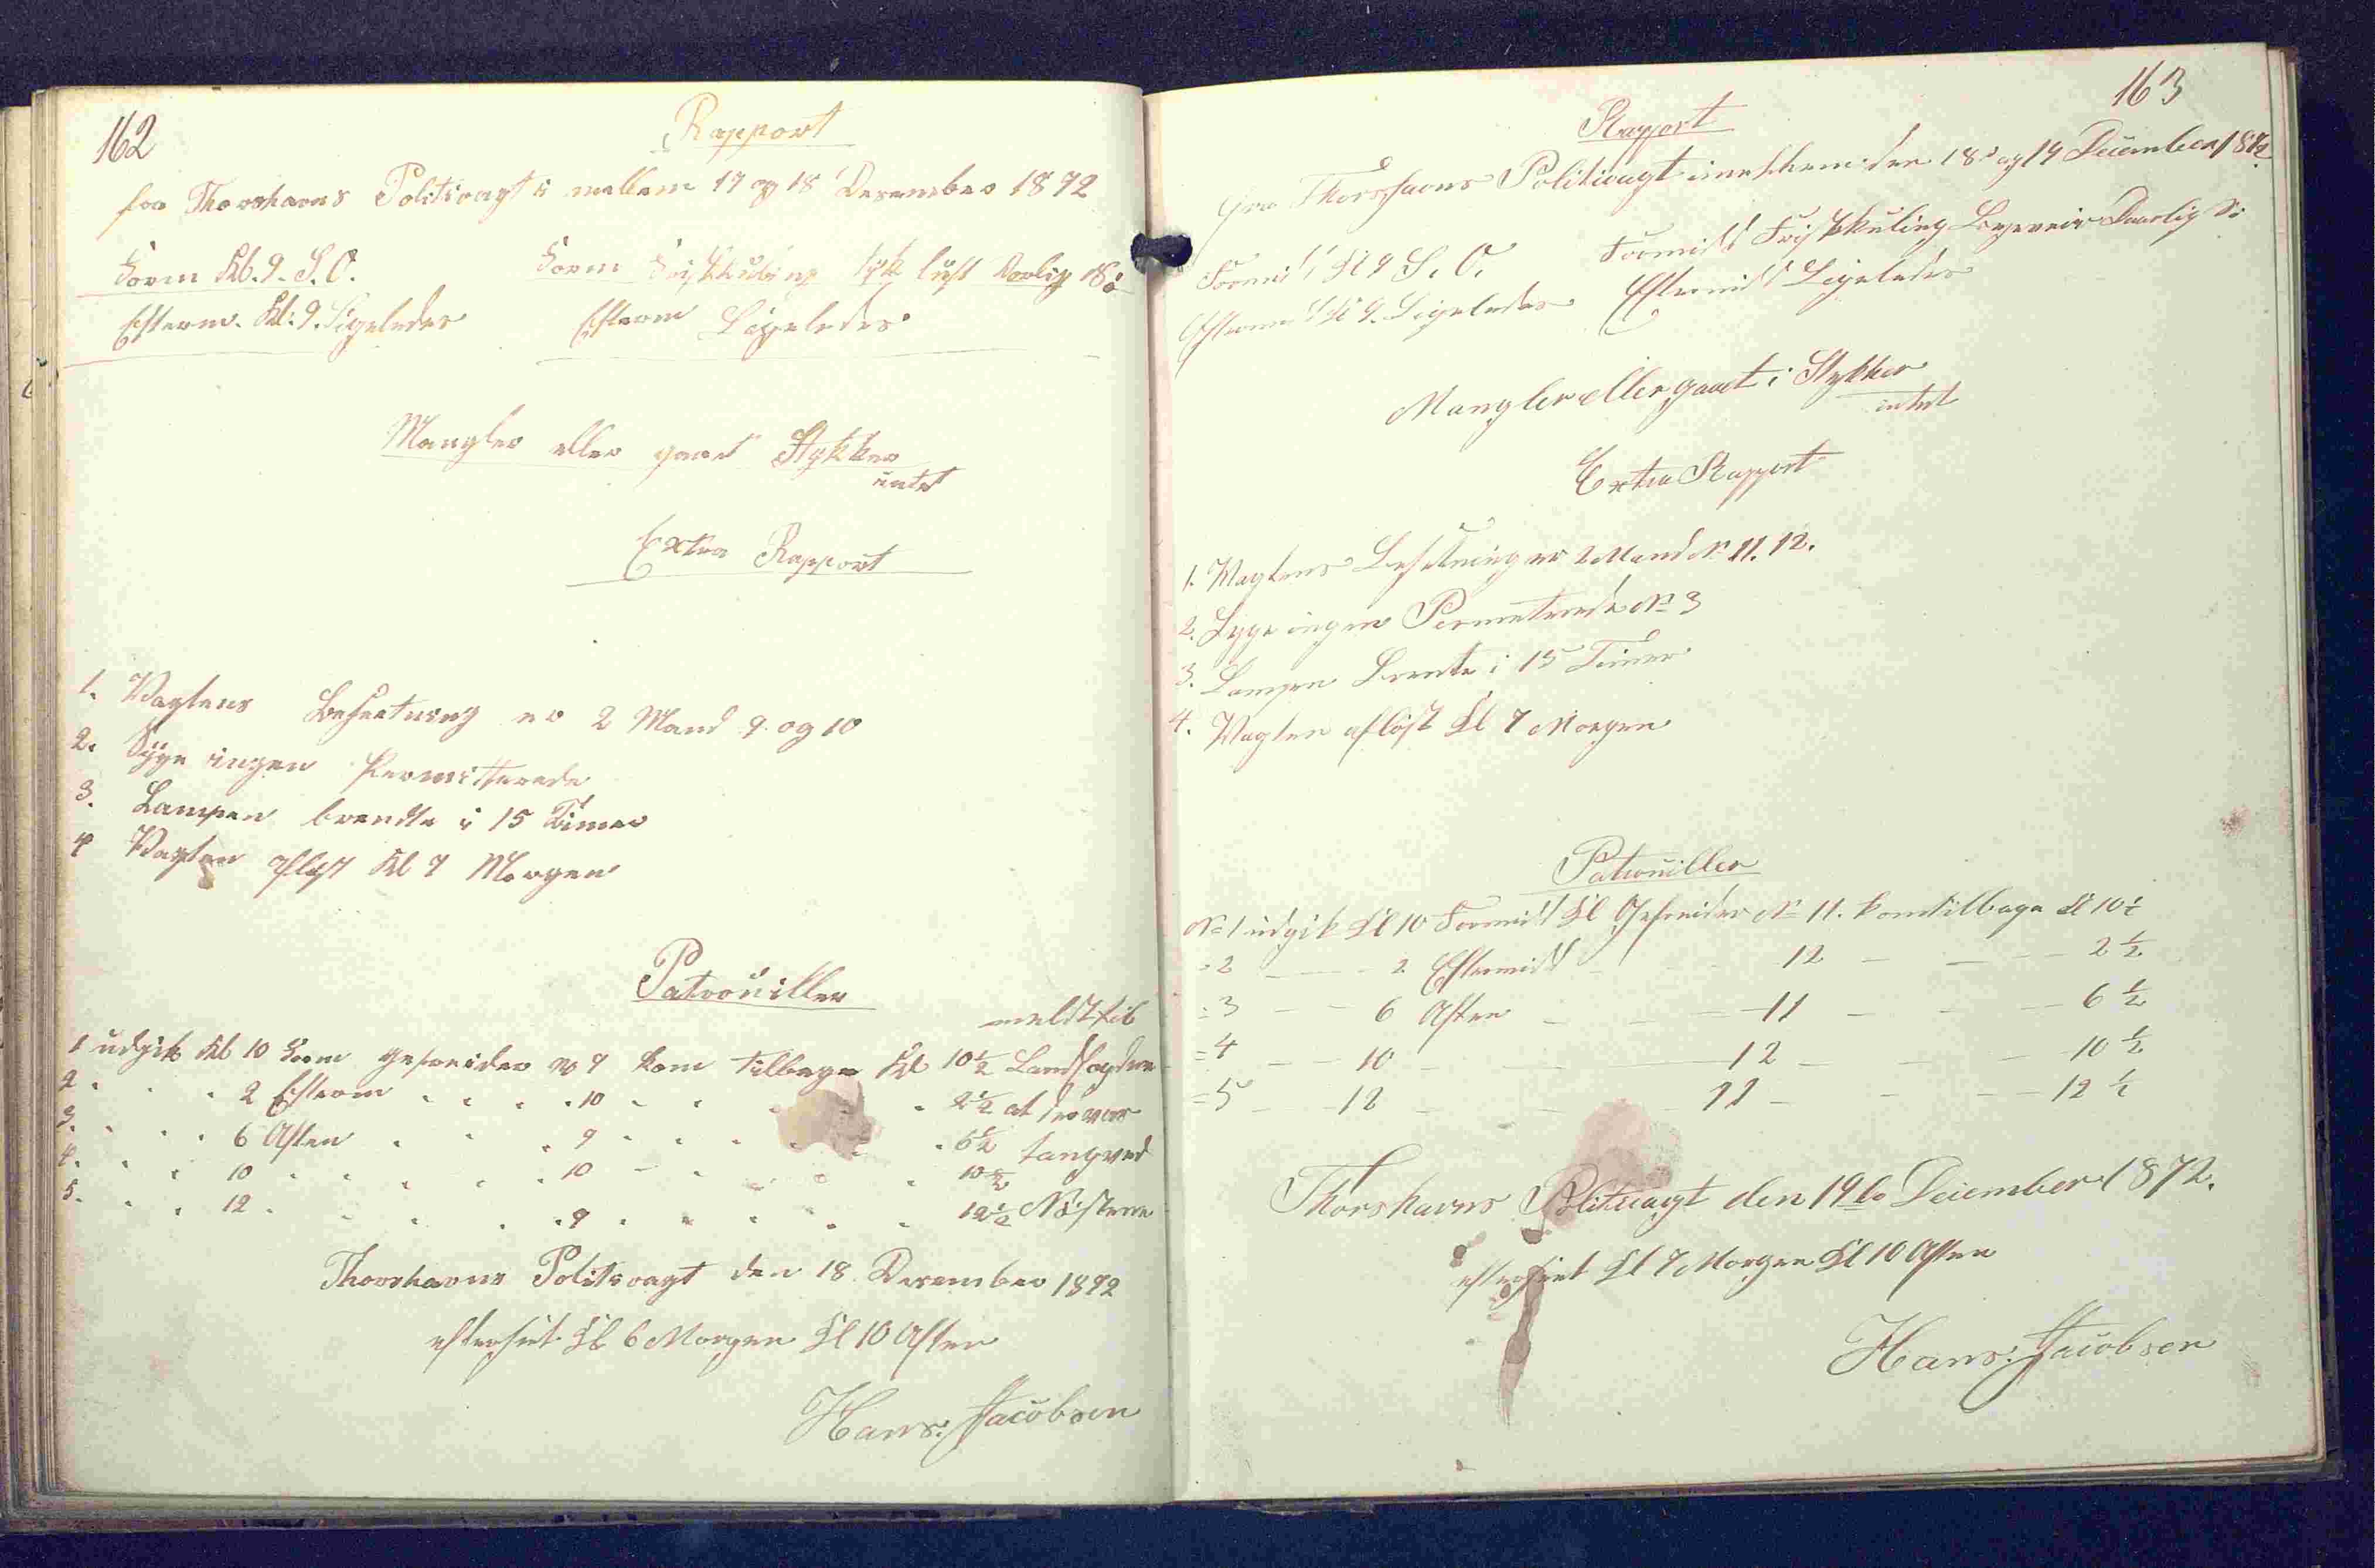 162
Rapport
fra Thorshavns Politivagt i mellem 17 og 18 Desember 1872
Form Kl. 9. S.O.
Form Friskkuling tyk luft Daarlig
Efterm. Kl: 9. Ligeledes
Efterm Ligeledes
Mangler eller gaaet Stykker
intet
Extra Rapport
1. Vagtens Besætning er 2 Mand 9. og 10
2. Syge ingen Permitterede
3. Lampen brendte i 15 Timer
4 Vagten afløst Kl 7 Morgen
Patrouiller
meldt til
1 udgik Kl 10 Form Gefreider No 9 kom tilbage Kl 10½ Landfogden
2. " " 2 Efterm " " " 10 " " " " 2½ at der var
3. " " 6 Aften " " " 9 " " " " 6½ tang ved
4. " " 10 " " " " 10 " " " " 10½
5. " " 12 " " " " 9 " " " " 12½ Nøstene
Thorshavns Politivagt den 18 Desember 1872
efterseet Kl 6 Morgen Kl 10 Aften
Hans. Jacobsen
163
Rapport
Fra Thorshavns Politivagt imellem den 18 og 19 December 1872.
Formid Kl 9 S.O.
Formidd Frisk kuling Daarlig
Eftermid Kl 9. Ligeledes
Eftermidd Ligeledes
Mangler eller gaaet i Stykker
intet
Extra Rapport
1. Vagtens Besetning er 2 Mand No 11. 12.
2. Syge ingen Permetrede No 3
3. Lampen Brente i 15 Timer
4. Vagten afløst Kl 7 Morgen
Patrouiller
No 1 udgik Kl 10 Formidd Kl Gefreider No 11. kom tilbage Kl 10½
=2 — — 2 Eftermidd — — 12 — — — 2½
=3 — — 6 Aften — — — 11 — — — 6½
=4 — — 10 — — — 12 — — 10½
=5 — 12 — — 11 — — — 12½
Thorshavns Politivagt den 19de December 1872.
efterseet Kl 7 Morgen Kl 10 Aften
Hans. Jacobsen